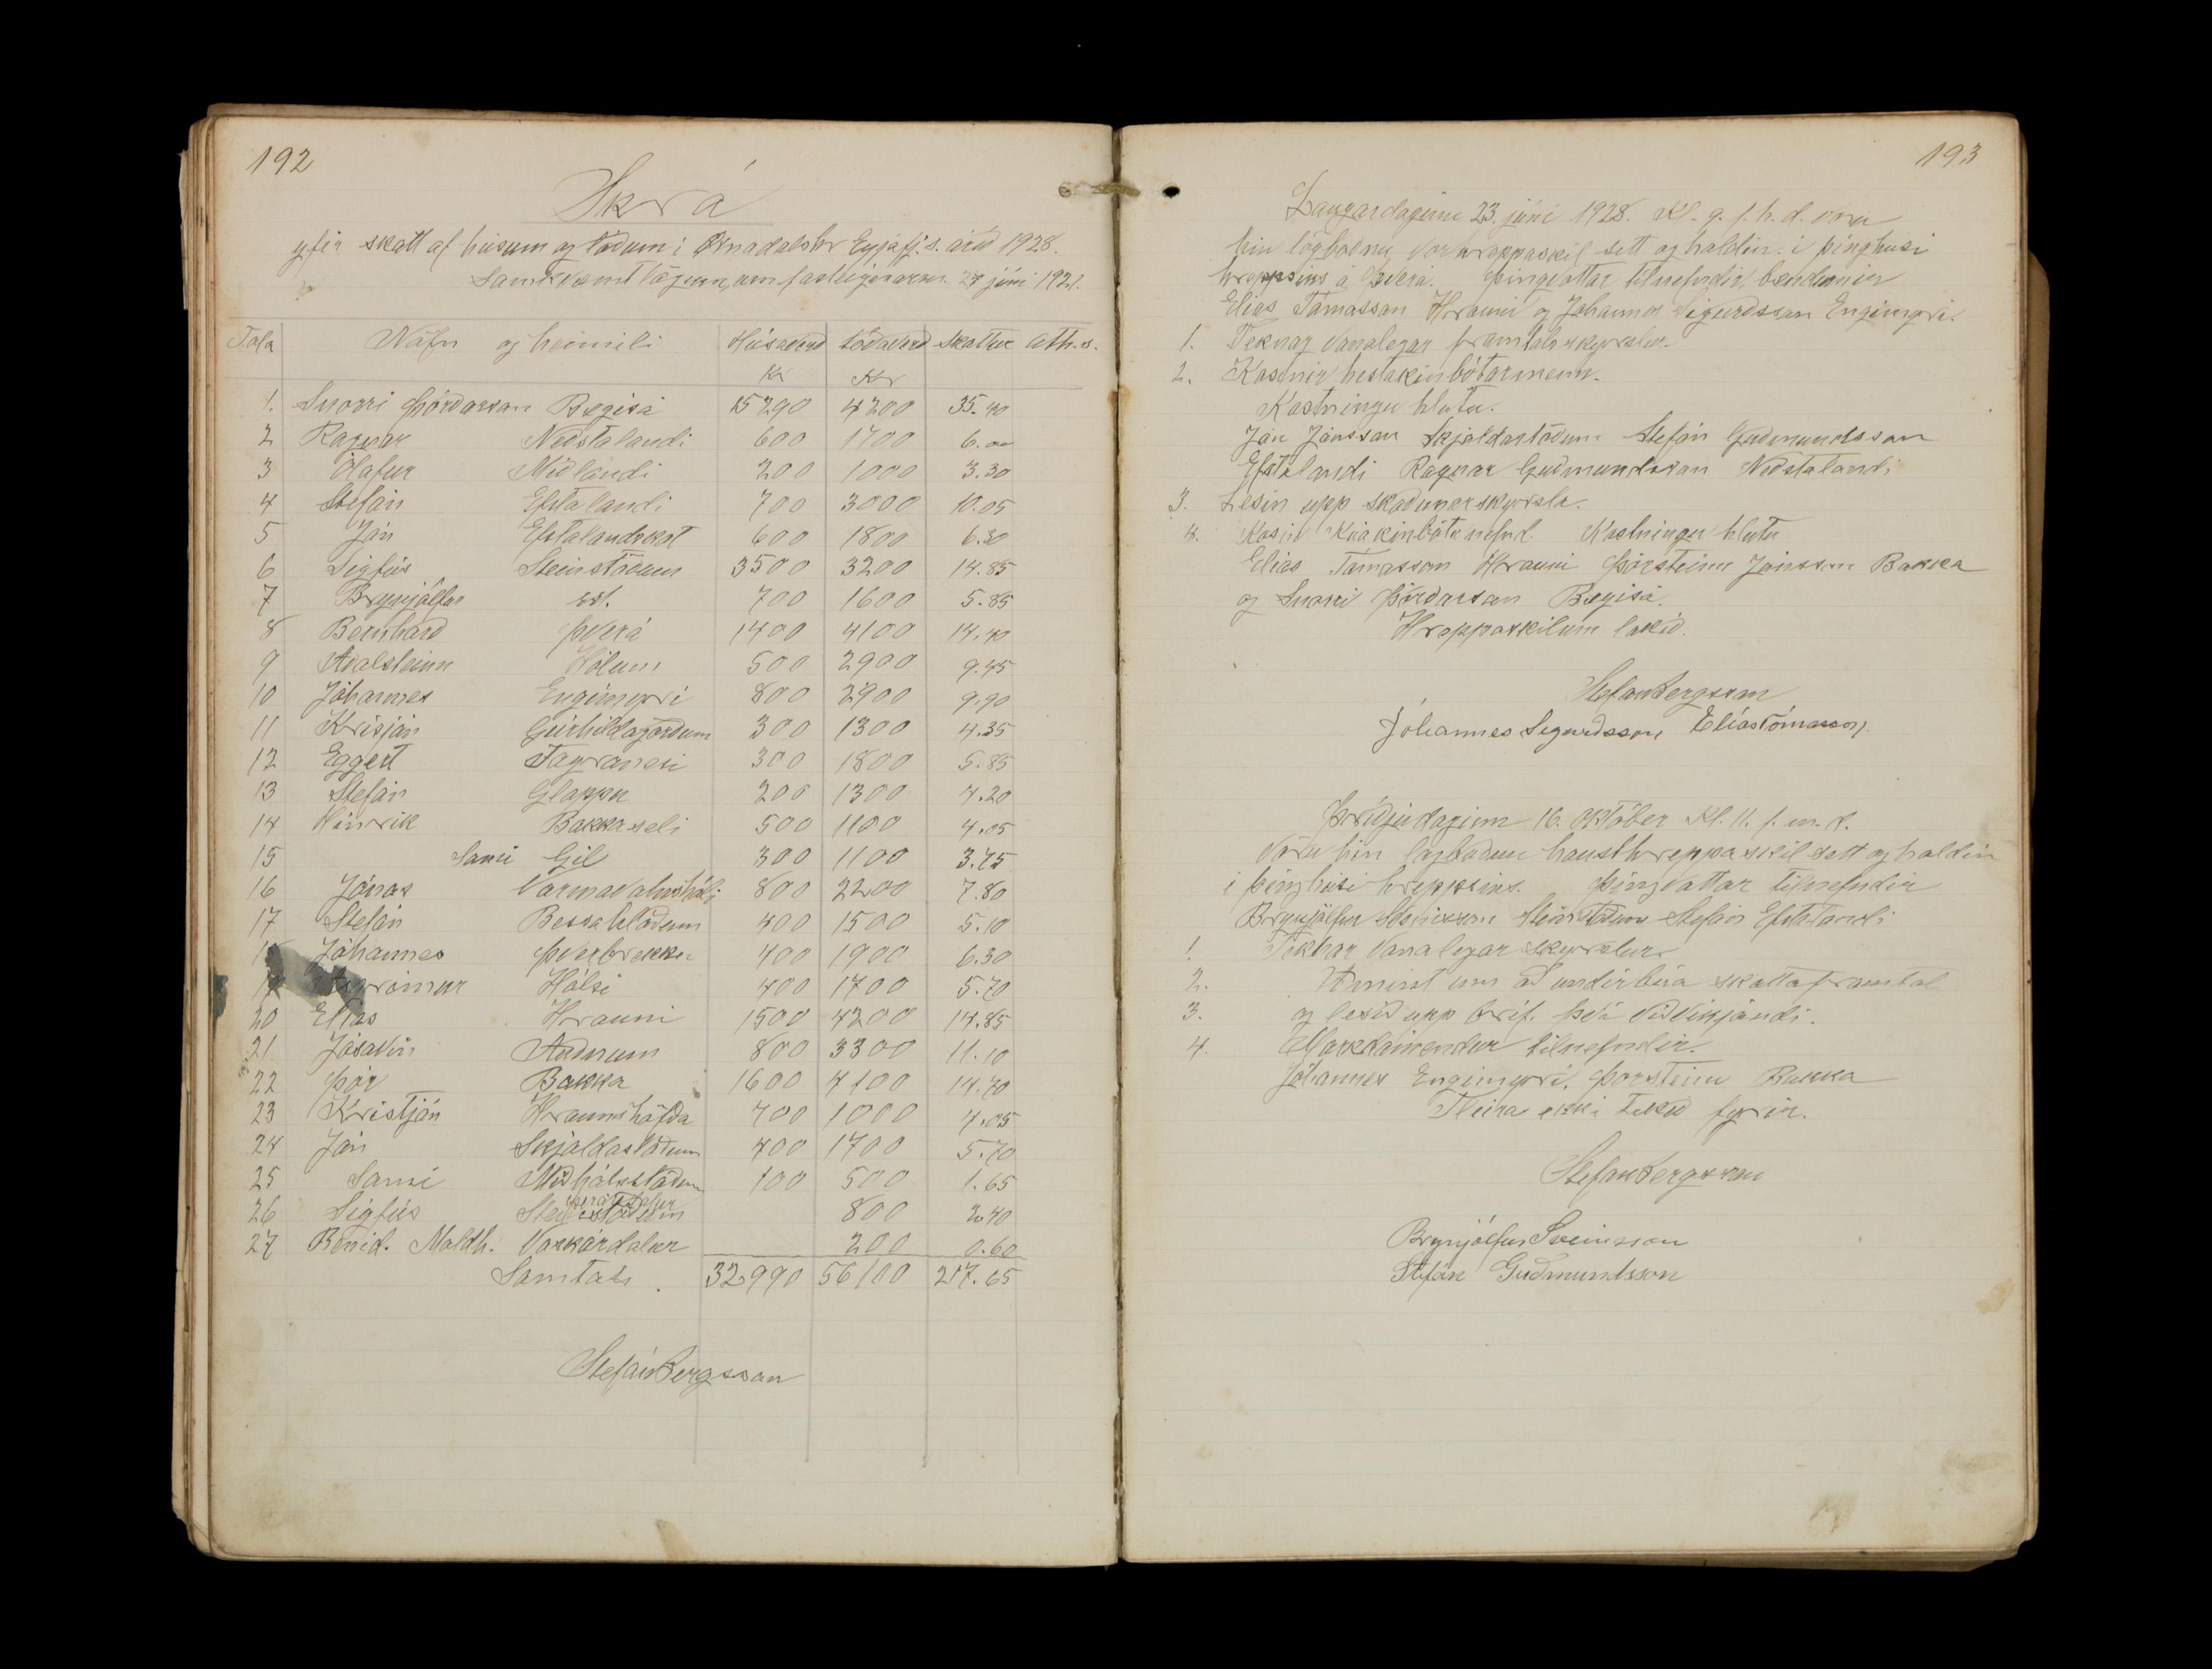 192
Skrá
yfir skatt af húsum og lóðum í Öxnadalshr Eyjafj.s. árið 1928.
Samkvæmt lögum, um fasteignaskatt. 27 júní 1921.
Tala Nöfn og heimili Húsaverð Lóðaverð Skattur Ath.s.
Kr Kr
1. Snorri Þórdarson Bægisá 15290 4200 35.40
2 Ragnar Neðstalandi 600 1700 6.00
3 Ólafur Miðlandi 200 1000 3.30
4 Stefán Efstalandi 700 3000 10.05
5 Jón Efstalandskot 600 1800 6.30
6 Sigfús Steinstöðum 3500 3200 14.85
7 Brynjólfur s.st. 700 1600 5.85
8 Bernhard Þverá 1400 4100 14.40
9 Aðalsteinn Hólum 500 2900 9.45
10 Jóhannes Engimyri 800 2900 9.90
11 Krisján Geirhildagörðum 300 1300 4.35
12 Eggert Fagranesi 300 1800 5.85
13 Stefán Gloppu 200 1300 4.20
14 Hinrik Bakkaseli 500 1100 4.05
15 Sami Gil 300 1100 3.75
16 Jónas Varmavatnshóli 800 2200 7.80
17 Stefán Bessahlöðum 400 1500 5.10
18 Jóhannes Þverbrekku 400 1900 6.30
Hólsi 400 1700 5.70
20 Elías Hrauni 1500 4200 14.85
21 Jósavin Auðnum 800 3300 11.10
22 Þór Bakka 1600 4100 14.70
23 Kristján Hraunshöfða 700 1000 4.05
24 Jón Skjaldastöðum 400 1700 5.70
25 Sami Miðhálsstöðum 100 500 1.65
26 Sigfús Steinstöðum 800 2.40
27 Benid. Moldh. Vaskárdalur 200 0.60
Samtals. 32,990 56100 217.65
Stefán Bergsson
193
Laugardaginn 23. júní 1928. Kl. 9. f.h.d. voru
hin lögboðnu vorhreppaskil sett og haldin í þinghúsi
hreppsins á Þverá. Þingvottar tilnefndir bændurnir
Elías Tómasson Hrauni og Jóhannes Sigurðsson Engimyri.
1. Teknar vanalegar framtalsskyrslur.
2. Kosnir hestakinbótamenn.
Kostningu hlutu.
Jón Jónsson Skjaldastöðum Stefán Guðmundsson
Efstalandi Ragnar Guðmundsson Neðstalandi
3. Lesin upp skoðunerskyrsla.
4. Kosin kúakinbótanefnd. Kostningu hlutu
Elías Tómasson Hrauni Þorsteinn Jónsson Bakka
og Snorri Þórdarson Bægisá.
Hreppaskilum lokið.
Stefan Bergsson
Jóhannes Sigurdsson, Elías Tómasson,
Þriðjudaginn 16. Október Kl. 11. f.m.d.
Voru hin lögboðnu hausthreppaskil sett og haldin
í þinghúsi hreppsins. Þingvottar tilnefndir
Brynjólfur Sveinsson Steinstöðum Stefán Efstalandi
1. Teknar vanalegar skyrslur.
2. Áminst um að undirbúa skattaframtal
3. og lesið upp brif. því viðvikjandi.
4. Markdómendur tilnefndir.
Jóhannes Engimyri, Þorsteinn Bakka
Fleira ekki tekið fyrir.
Stefan Bergsson
Brynjólfur Sveinsson
Stefán Guðmundsson